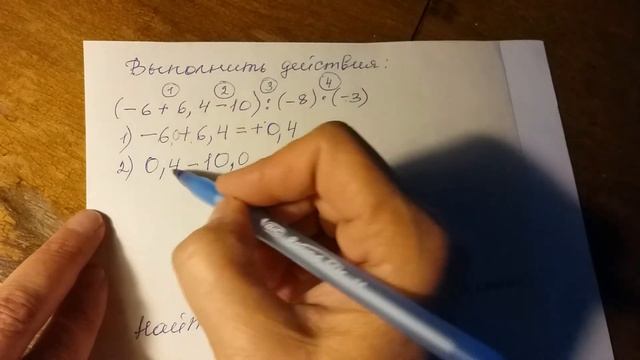 Выполнить действия:
① ② ③ ④
(-6 + 6,4 - 10) : (-8) · (-3)
1) -6,0 + 6,4 = +0,4
2) 0,4 - 10,0